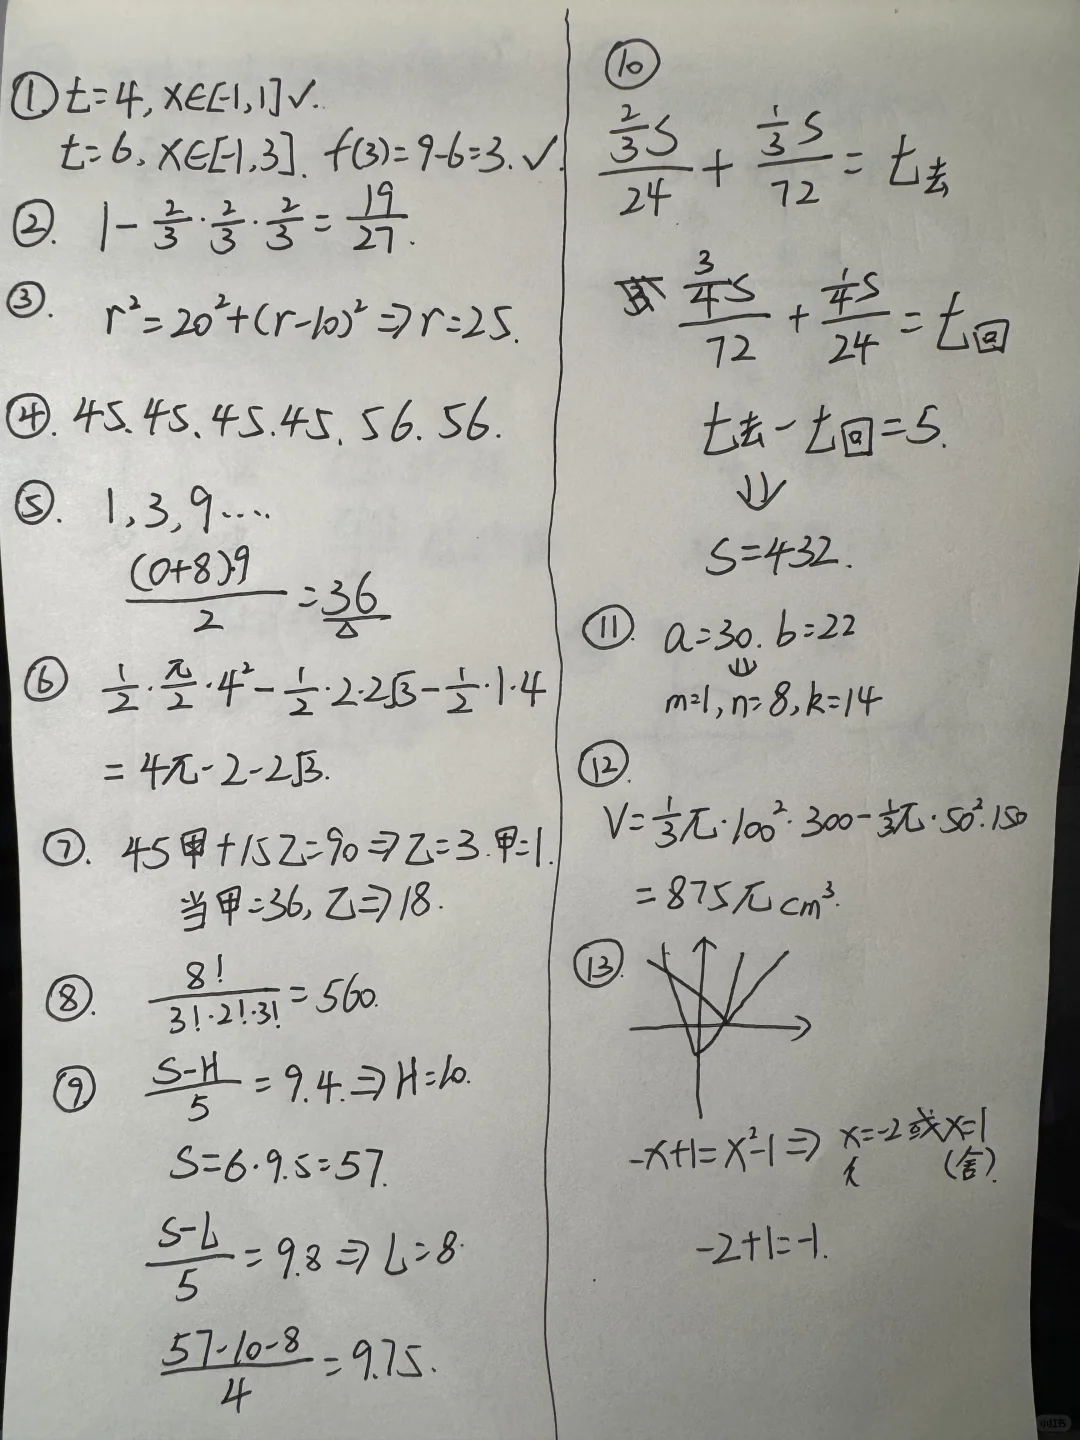 ① t=4, x∈[-1,1]✓.
t=6, x∈[-1,3]. f(3)=9-6=3.✓
②. 1-2/3·2/3·2/3=19/27.
③. r²=20²+(r-10)²⇒r=25.
④. 45、45、45.45、56.56.
⑤. 1,3,9....
(0+8)·9/2=36
⑥ 1/2·π/2·4²-1/2·2·2√3-1/2·1·4
=4π-2-2√3.
⑦. 45甲+15乙=90⇒乙=3.甲=1.
当甲=36,乙⇒18.
⑧. 8!/3!·2!·3!=560.
⑨. S-H/5=9.4.⇒H=10.
S=6·9.5=57.
S-L/5=9.8⇒L=8.
57-10-8/4=9.75.
⑩
2/3S/24+1/3S/72=t去
3/4S/72+1/4S/24=t回
t去-t回=5.
⇓
S=432.
⑪. a=30. b=22
⇓
m=1,n=8,k=14
⑫.
V=1/3π·100²·300-1/3π·50²·150
=875π cm³.
⑬.
-x+1=x²-1⇒x=-2或x=1
(舍).
-2+1=-1.